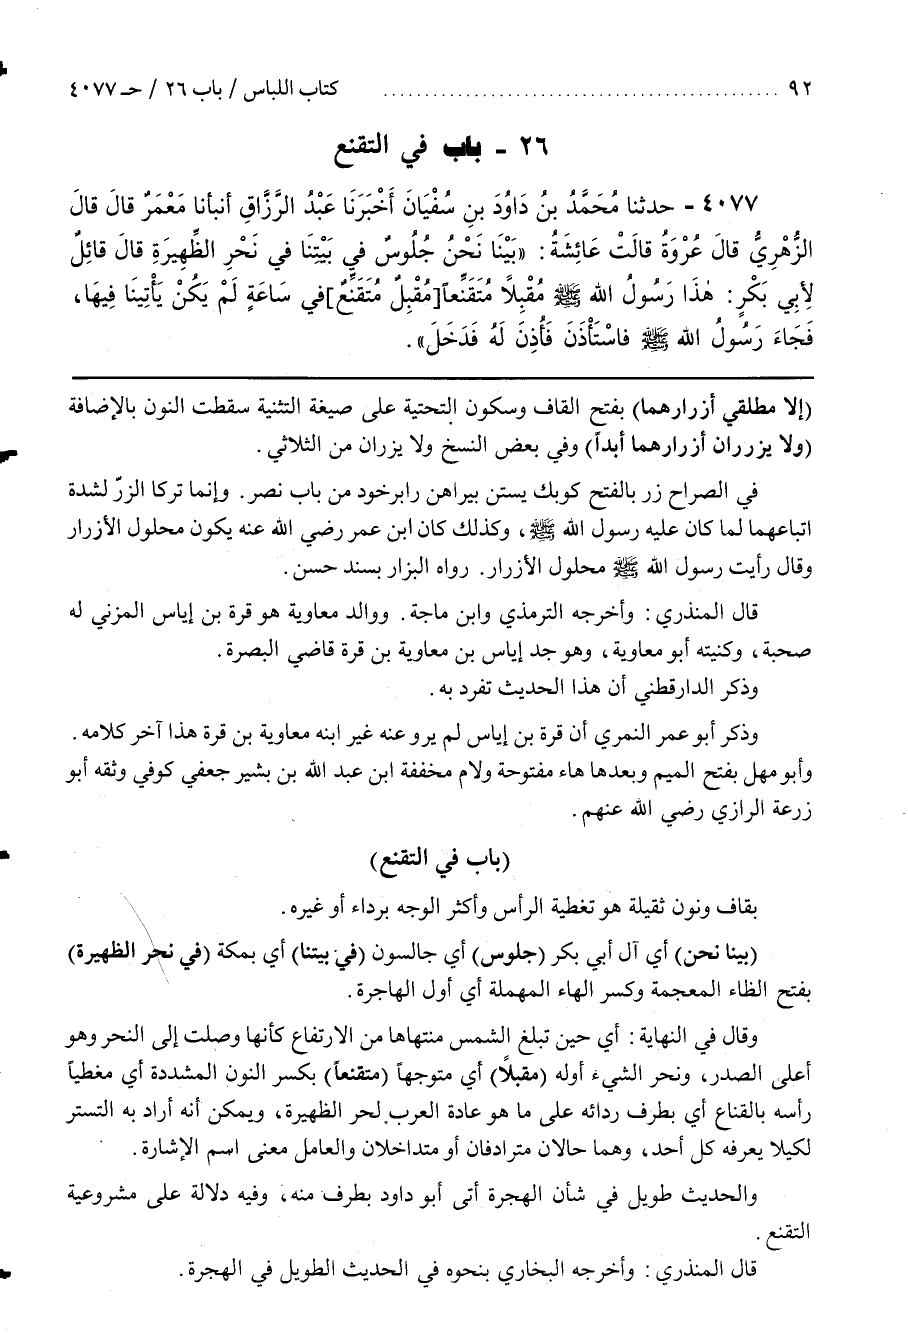 ٩٢ ................................................ كتاب اللباس / باب ٢٦ / حـ ٤٠٧٧
٢٦ - باب في التقنع
٤٠٧٧ - حدثنا مُحَمَّدُ بنُ دَاوُدَ بنِ سُفْيَانَ أَخْبَرَنَا عَبْدُ الرَّزَّاقِ أنبأنا مَعْمَرٌ قالَ قالَ
الزُّهْرِيُّ قالَ عُرْوَةُ قالَتْ عَائِشَةُ: «بَيْنَا نَحْنُ جُلُوسٌ في بَيْتِنَا في نَحْرِ الظَّهِيرَةِ قالَ قائِلٌ
لِأبِي بَكْرٍ: هٰذَا رَسُولُ الله ﷺ مُقْبِلاً مُتَقَنِّعاً[مُقْبِلٌ مُتَقَنِّعٌ]في سَاعَةٍ لَمْ يَكُنْ يَأْتِينَا فِيهَا،
فَجَاءَ رَسُولُ الله ﷺ فاسْتَأْذَنَ فَأُذِنَ لَهُ فَدَخَلَ».
(إلا مطلقي أزرارهما) بفتح القاف وسكون التحتية على صيغة التثنية سقطت النون بالإضافة
(ولا يزرران أزرارهما أبداً) وفي بعض النسخ ولا يزران من الثلاثي.
في الصراح زر بالفتح كوبك يستن بيراهن رابرخود من باب نصر. وإنما تركا الزرّ لشدة
اتباعهما لما كان عليه رسول الله ﷺ، وكذلك كان ابن عمر رضي الله عنه يكون محلول الأزرار
وقال رأيت رسول الله ﷺ محلول الأزرار. رواه البزار بسند حسن.
قال المنذري: وأخرجه الترمذي وابن ماجة. ووالد معاوية هو قرة بن إياس المزني له
صحبة، وكنيته أبو معاوية، وهو جد إياس بن معاوية بن قرة قاضي البصرة.
وذكر الدارقطني أن هذا الحديث تفرد به.
وذكر أبو عمر النمري أن قرة بن إياس لم يرو عنه غير ابنه معاوية بن قرة هذا آخر كلامه.
وأبو مهل بفتح الميم وبعدها هاء مفتوحة ولام مخففة ابن عبد الله بن بشير جعفي كوفي وثقه أبو
زرعة الرازي رضي الله عنهم.
(باب في التقنع)
بقاف ونون ثقيلة هو تغطية الرأس وأكثر الوجه برداء أو غيره.
(بينا نحن) أي آل أبي بكر (جلوس) أي جالسون (في بيتنا) أي بمكة (في نحر الظهيرة)
بفتح الظاء المعجمة وكسر الهاء المهملة أي أول الهاجرة.
وقال في النهاية: أي حين تبلغ الشمس منتهاها من الارتفاع كأنها وصلت إلى النحر وهو
أعلى الصدر، ونحر الشيء أوله (مقبلاً) أي متوجهاً (متقنعاً) بكسر النون المشددة أي مغطياً
رأسه بالقناع أي بطرف ردائه على ما هو عادة العرب لحر الظهيرة، ويمكن أنه أراد به التستر
لكيلا يعرفه كل أحد، وهما حالان مترادفان أو متداخلان والعامل معنى اسم الإشارة.
والحديث طويل في شأن الهجرة أتى أبو داود بطرف منه، وفيه دلالة على مشروعية
التقنع.
قال المنذري: وأخرجه البخاري بنحوه في الحديث الطويل في الهجرة.